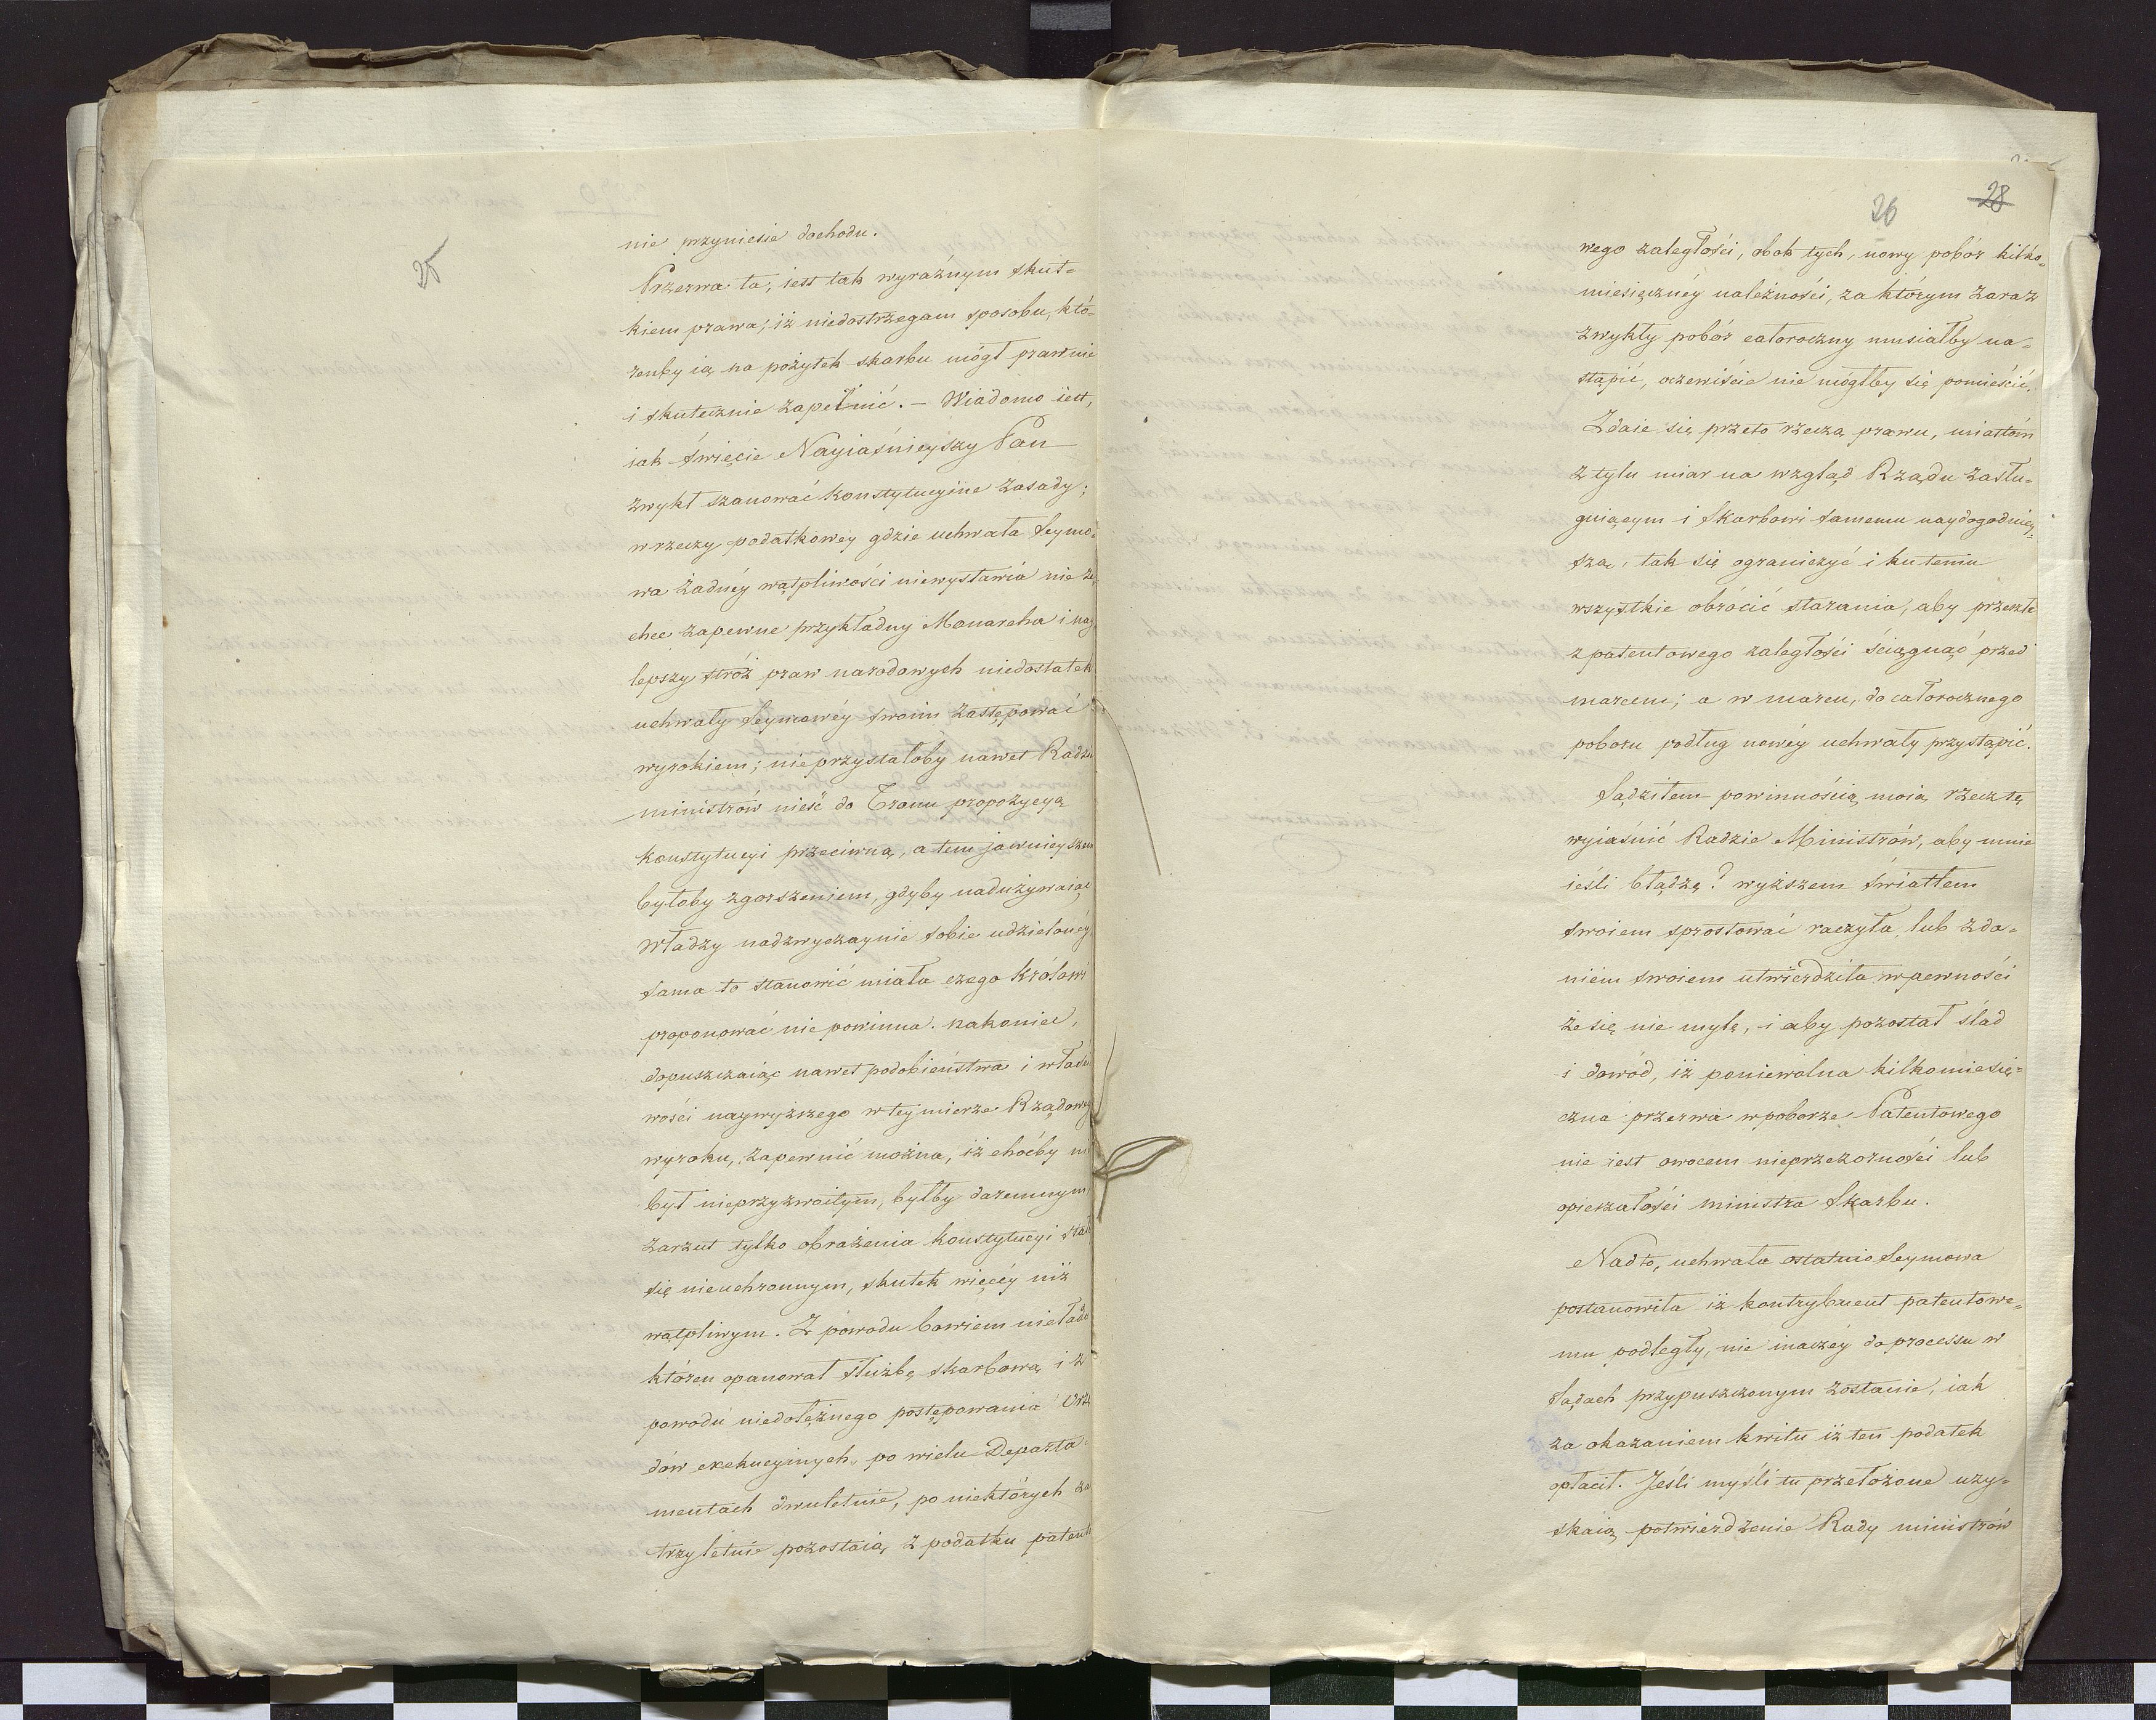 25
nie przyniesie dochodu.
Przerwa ta, iest tak wyraźnym skut=
kiem prawa, iż niedostrzegam sposobu, któ=
renby ią na pożytek skarbu mógł prawnie
i skutecznie zapełnić. — Wiadomo iest,
iak święcie Nayiaśnieyszy Pan
zwykł szanować konstytucyine zasady;
w rzeczy podatkowey gdzie uchwała Seymo=
wa żadnéy wątpliwości niewystawia nie ze=
chce zapewne przykładny Monarcha i nay
lepszy stróż praw narodowych niedostatek
uchwały Seymowéy swoim zastępować
wyrokiem; nieprzystałoby nawet Radzie
ministrów nieść do Tronu propozycyą
konstytucyi przeciwną, a tem jawnieyszem
byłoby zgorszeniem, gdyby nadużywaiąc
władzy nadzwyczaynie sobie udzielonéy
sama to stanowić miała czego Królowi
proponować nie powinna. nakoniec,
dopuszczaiąc nawet podobieństwa i właści
wości naywyższego w tey mierze Rządowey
wyroku, zapewnić można, iż choćby ni
był nieprzyzwoitym, byłby daremnym
zarzut tylko obrażenia konstytucyi stał
się nieuchronnym, skutek więcéy niż
wątpliwym. Z powodu bowiem nieładu
któren opanował służbę skarbową i z
powodu niedołężnego postępowania Urzę
dów exekucyinych, po wielu Departa=
mentach dwuletnie, po niektórych za
trzyletnie pozostaią z podatku patento
26 28
wego zaległości, obok tych, nowy pobór kilko=
miesięcznéy należności, za którym zaraz
zwykły pobór całoroczny musiałby na=
stąpić, oczewiście nie mógłby się pomieścić.
Zdaie się przeto rzeczą prawu, miastom
z tylu miar na wzgląd Rządu zasłu=
guiącym i Skarbowi samemu naydogodniey=
szą, tak się ograniczyć i ku temu
wszystkie obrócić starania, aby przeszłe
z patentowego zaległości ściągnąć przed
marcem; a w marcu, do całorocznego
poboru podług nowéy uchwały przystąpić.
Sądziłem powinnością moią rzecz tę
wyiaśnić Radzie Ministrów, aby mnie
ieśli błądzę? wyższem światłem
swoiem sprostować raczyła, lub zda=
niem swoiem utwierdziła w pewności
że się nie mylę, i aby pozostał ślad
i dowód, iż poniewolna kilkomiesię=
czna przerwa w poborze Patentowego
nie iest owocem nieprzezorności lub
opieszałości ministra Skarbu.
Nadto, uchwała ostatnio Seymowa
postanowiła iż kontrybuent patentowe=
mu podległy, nie inaczéy do processu w
Sądach przypuszczonym zostanie, iak
za okazaniem kwitu iż ten podatek
opłacił. Jeśli myśli tu przełożone uzy=
skaią potwierdzenie Rady ministrów